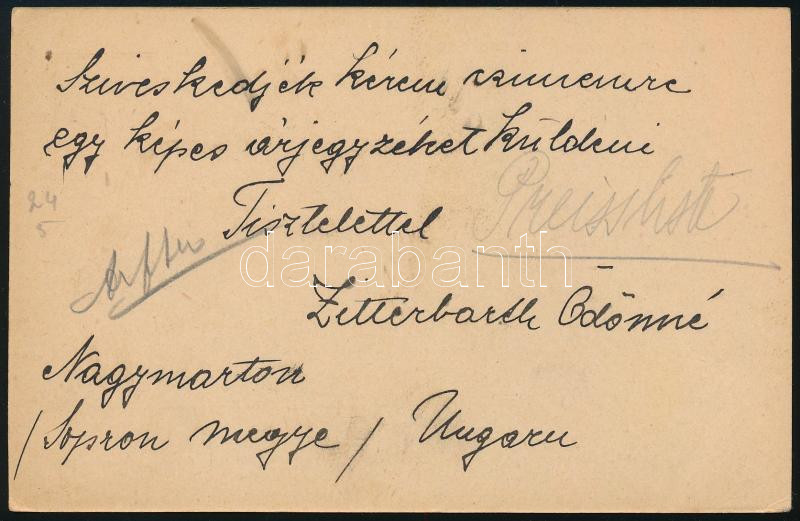 Sziveskedjék kérem czimemre
egy képes árjegyzéket küldeni
Tisztelettel
Preissliste
24
5
darabanth
Zitterbarth Ödönné
Nagymarton
/Sopron megye/ Ungarn